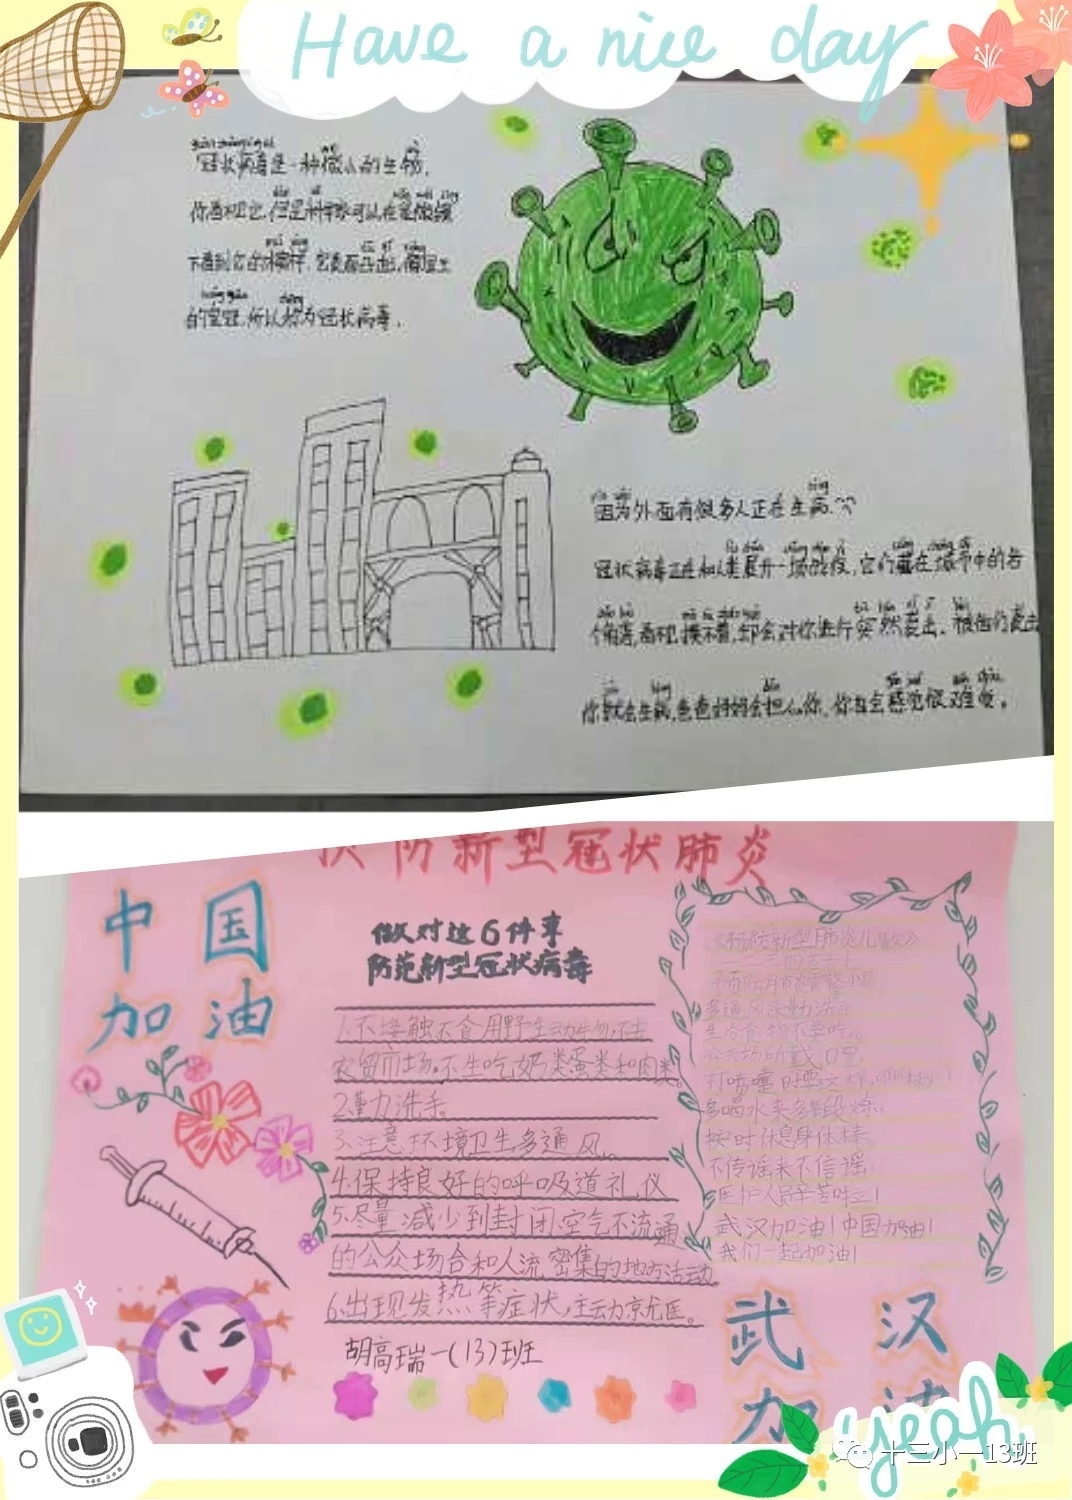 Have a nice day
冠状病毒是一种微小的生物,
你看不见它,但是科学家可以在显微镜
下看到它的模样,它表面凸出,像国王
的皇冠,所以称为冠状病毒.
因为外面有很多人正在生病.
冠状病毒正在和人类展开一场战役,它们藏在城市中的各
个角落,看不见,摸不着,却会对你进行突然袭击.被他们袭击
你就会生病,爸爸妈妈会担心你,你自己会感觉很难受。
预防新型冠状肺炎
中国
加油
做对这6件事
防范新型冠状病毒
1.不接触不食用野生动物,不去
农贸市场。不生吃奶类蛋类和肉类。
2.勤洗手。
3.注意环境卫生多通风。
4.保持良好的呼吸道礼仪
5.尽量减少到封闭空气不流通
的公众场合和人流密集的地方活动
6.出现发热等症状,主动就医。
胡高瑞一(13)班
《预防新型肺炎儿歌》
多通风衣物洗
生冷食物不要吃
公共场所戴口罩
打喷嚏时要这样,啊
多喝水来多锻炼
按时休息身体棒
不传谣来不信谣
医护人员辛苦啦!
武汉加油!中国加油!
我们一起加油!
武汉
加油
yeah
十三小一13班